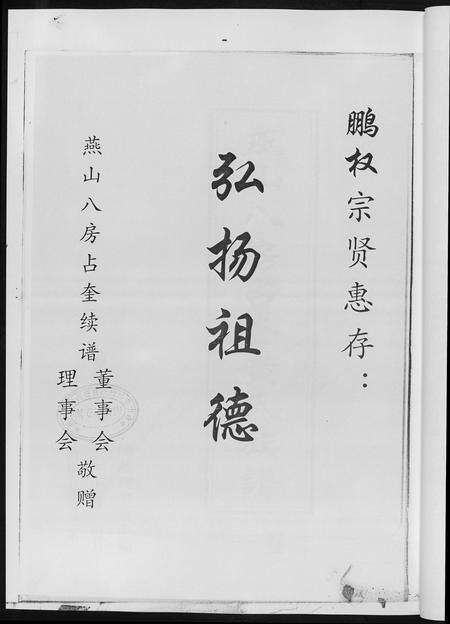 鹏权宗贤惠存：
弘扬祖德
燕山八房占奎续谱
董事会
理事会
敬赠